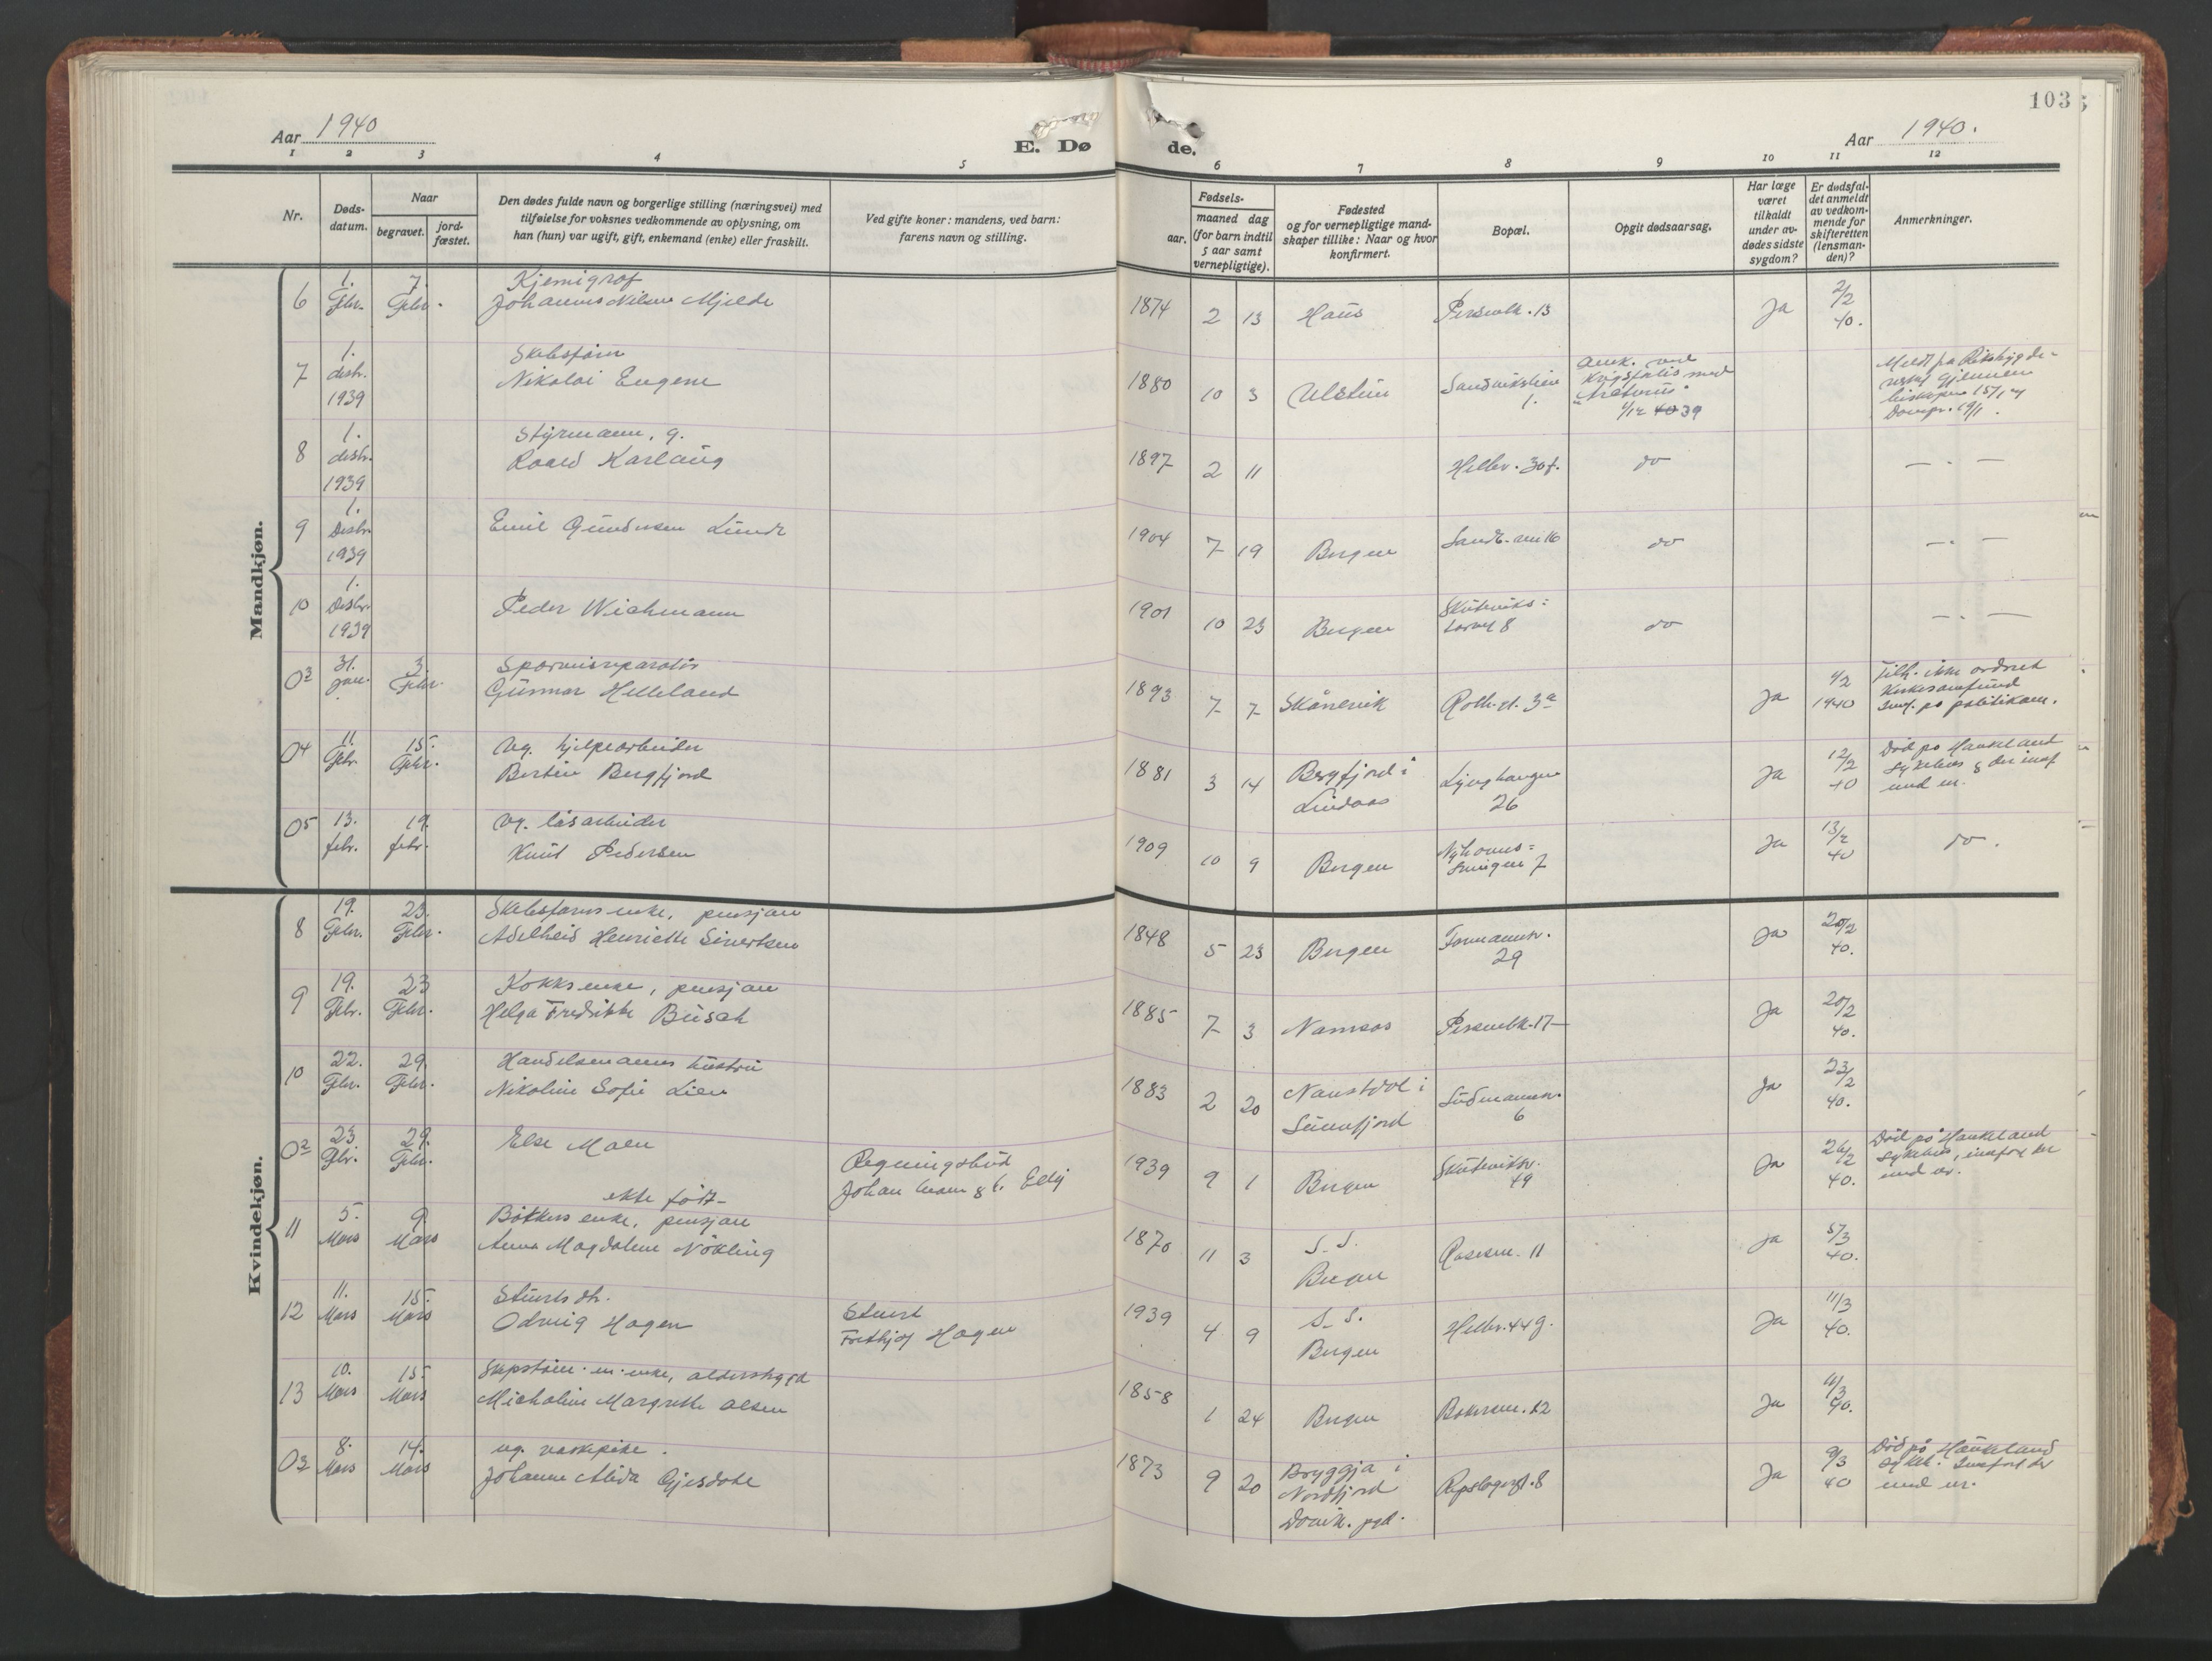 103
Aar 1940
E. Døde.
Aar 1940.
1 2 3 4 5 6 7 8 9 10 11 12
Nr.
Døds-
datum.
Naar
begravet.
jord-
fæstet.
Den dødes fulde navn og borgerlige stilling (næringsvei) med
tilføielse for voksnes vedkommende av oplysning, om
han (hun) var ugift, gift, enkemand (enke) eller fraskilt.
Ved gifte koner: mandens, ved barn:
farens navn og stilling.
Fødsels-
aar.
maaned dag
(for barn indtil
5 aar samt
vernepligtige).
Fødested
og for vernepligtige mand-
skaper tillike: Naar og hvor
konfirmert.
Bopæl.
Opgit dødsaarsag.
Har læge
været
tilkaldt
under av-
dødes sidste
sygdom?
Er dødsfal-
det anmeldt
av vedkom-
mende for
skifteretten
(lensman-
den)?
Anmerkninger.
Mandkjøn.
6 1. Febr. 7. Febr. Kjemigraf
Johannes Nilsen Mjelde 1874 2 13 Haus 13 Ja 2/2 40.
7 1. desbr. 1939
Nikolai Eugene 1880 10 3 Ulstein Sandviksleien 1. 1/12 39
8 1. desbr. 1939 Styrmann, g.
Roald Karlaug 1897 2 11 Helbr. 30 f. do — " —
9 1. Desbr. 1939 Emil Gundersen Lunde 1904 7 19 Bergen do — " —
10 1. Desbr. 1939 Peder Wichmann 1901 10 23 Bergen Skuteviks=
torvet 8 do — " —
03 31. jan. 3. Febr. Sporveisreparatør
Gunnar Helleland 1893 7 7 Skånevik 3a Ja 1/2 1940 Tilh. ikke ordnet
kirkesamfund
04 11. Febr. 15. Febr. ug. hjelpearbeider
Bertin Bergfjord 1881 3 14 Bergfjord i
Lindaas Lynghaugen
26 Ja 12/2 40 Død på Haukeland
05 13. febr. 19. febr. ug. løsarbeider
Knut Pedersen 1909 10 9 Bergen 7 Ja 13/2 40 do.
Kvindekjøn.
8 19. Febr. 23. Febr. enke, pensjon
Adelheid Henriette Sivertsen 1848 5 23 Bergen Formannsv.
29 Ja 20/2 40.
9 19. Febr. 23 Febr. Kokks enke, pensjon
Helga Fredrikke Busch 1885 7 3 Namsos 17 Ja 20/2 40.
10 22. Febr. 29. Febr. Handelsmanns hustru
Nikoline Sofie Lien 1883 2 20 Naustdal i
Sunnfjord Sudmannsv.
6 Ja 23/2 40.
02 23. Febr. 29. Febr. Else Moen
ekte født Regningsbud
Johan Moen g. f. Elly 1939 9 1 Bergen Skuteviksv.
49 Ja 26/2 40. Død på Haukeland
sykehus, innført der
med nr.
11 5. Mars 9. Mars Bøkkers enke, pensjon
Anna Magdalene Nökling 1870 11 3 S. S.
Bergen Rosesm. 11 ja 5/3 40.
12 11. Mars 15. Mars Stuerts dtr.
Odveig Hagen Stuert
Fridthjof Hagen 1939 4 9 S. S.
Bergen Helbr. 44 g. Ja 11/3 40.
13 10. Mars 15. Mars enke, alderstrygd
Micholine Margrethe Olsen 1858 1 24 Bergen 12 Ja 11/3 40.
03 8. Mars 14. Mars ug. vaskepike.
Johanne Alida Gjesdale 1873 9 20 Bryggja i
Nordfjord
Davik. pgd. Repslagergt. 8 Ja 9/3 40 Død på Haukeland
sykeh. Innført der
med nr.